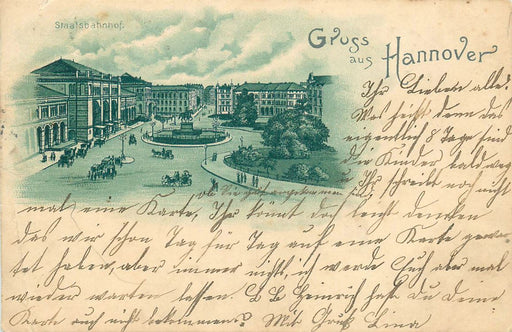 Staatsbahnhof.
Gruss
aus Hannover
Ihr Lieben alle.
Was heißt denn das
eigentlich 8 Tage sind
die Kinder bald weg
Ihr schreibt noch nicht
ob Sie gut angekommen sind
mal eine Karte, Ihr könnt doch leicht denken
das wir schon Tag für Tag auf eine Karte gewar-
tet haben, aber immer nichts, ich werde Euch aber mal
wieder warten lassen. L. Heinrich hast du deine
Karte auch nicht bekommen? Mit Gruß Lina